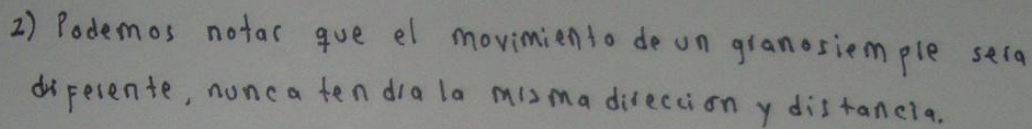 2) Podemos notar que el movimiento de un grano siempre sera
diferente, nunca tendra la misma direccion y distancia.